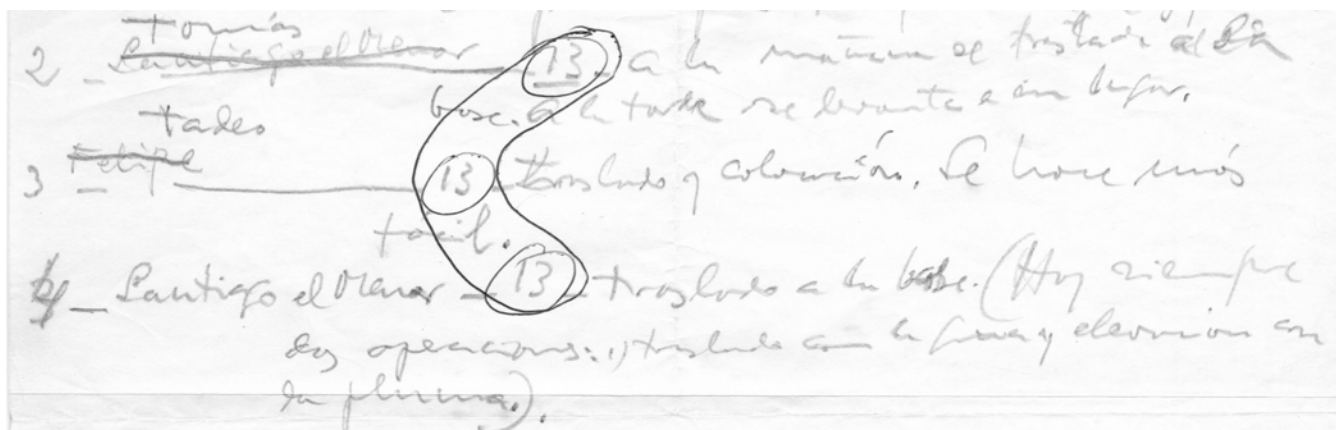 Tomás
2 - Santiago el Menor - 13 - a la mañana se traslada a la
base. a la tarde se levanta a su lugar.
Tadeo
3 - Felipe 13 - traslado y colocación. Se hace más
fácil.
4 - Santiago el Menor - 13 - traslado a la base. (Hay siempre
dos operaciones: 1) traslado con la grua y elevacion con
la pluma.).